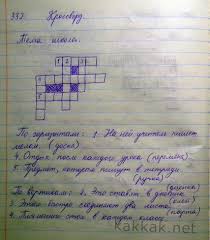 332. Кроссворд.
Тема: школа.
1 2 3
4
5
По горизонтали: 1. На ней учитель пишет
мелом. (доска)
4. Отдых после каждого урока (перемена)
5. Предмет, которым пишут в тетради
(ручка)
По вертикали: 2. Это ставят в дневник
(оценка)
3. Этим быстро соединяют два листа (клей)
4. Письменный стол в каждом классе (парта)
Kakkak.net